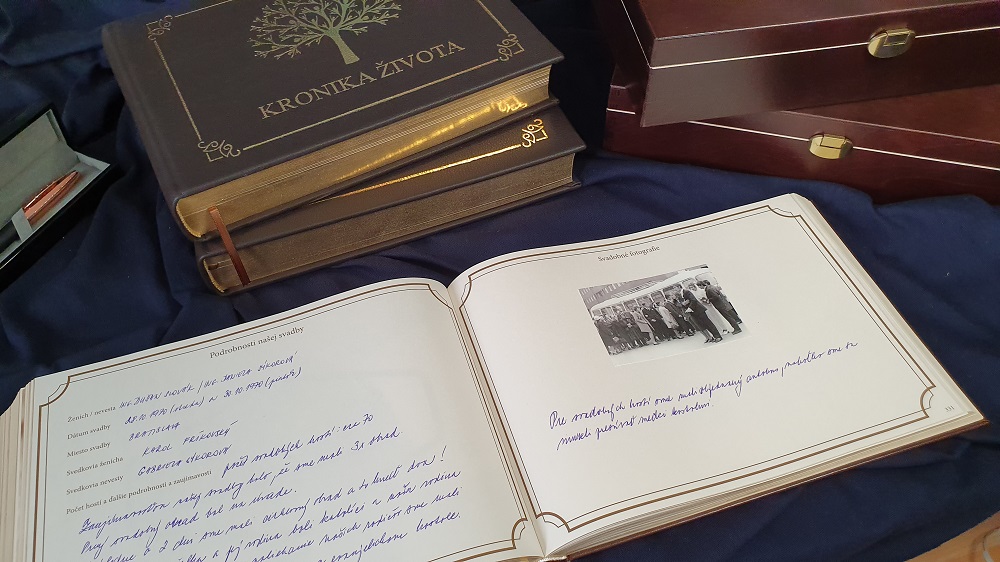 KRONIKA ŽIVOTA
Podrobnosti našej svadby
Ženích / nevesta ING. DUŠAN SLOVÁK / ING. DANIELA SÝKOROVÁ
Dátum svadby 28.10.1970 (streda) a 30.10.1970 (piatok)
Miesto svadby BRATISLAVA
Svedkovia ženícha KAROL
Svedkovia nevesty GABRIELA SÝKOROVÁ
Počet hostí a ďalšie podrobnosti a zaujímavosti počet svadobných hostí: cca 70
Zaujímavosťou našej svadby bolo, že sme mali 3x obrad.
Prvý svadobný obrad bol na úrade.
o 2 dni sme mali cirkevný obrad a to hneď dva!
a jej rodina boli katolíci a naša rodina
našich rodičov sme mali
evanjelickom kostole.
Svadobné fotografie
Pre svadobných hostí sme mali objednaný autobus, nakoľko sme sa
museli presúvať medzi kostolmi.